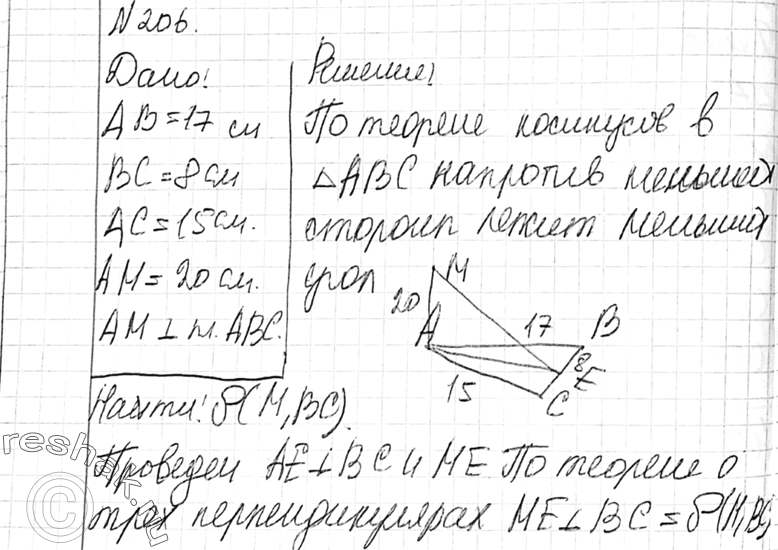 N 206.
Дано:
AB = 17 см
BC = 8 см
AC = 15 см.
AM = 20 см.
AM ⊥ пл. ABC.
Найти: ρ(M, BC).
Решение:
По теореме косинусов в
△ABC напротив меньшей
стороны лежит меньший
угол
M
20
A
17
B
8
E
15
C
Проведем AE ⊥ BC и ME. По теореме о
трех перпендикулярах ME ⊥ BC = ρ(M, BC)
reshak.ru
©